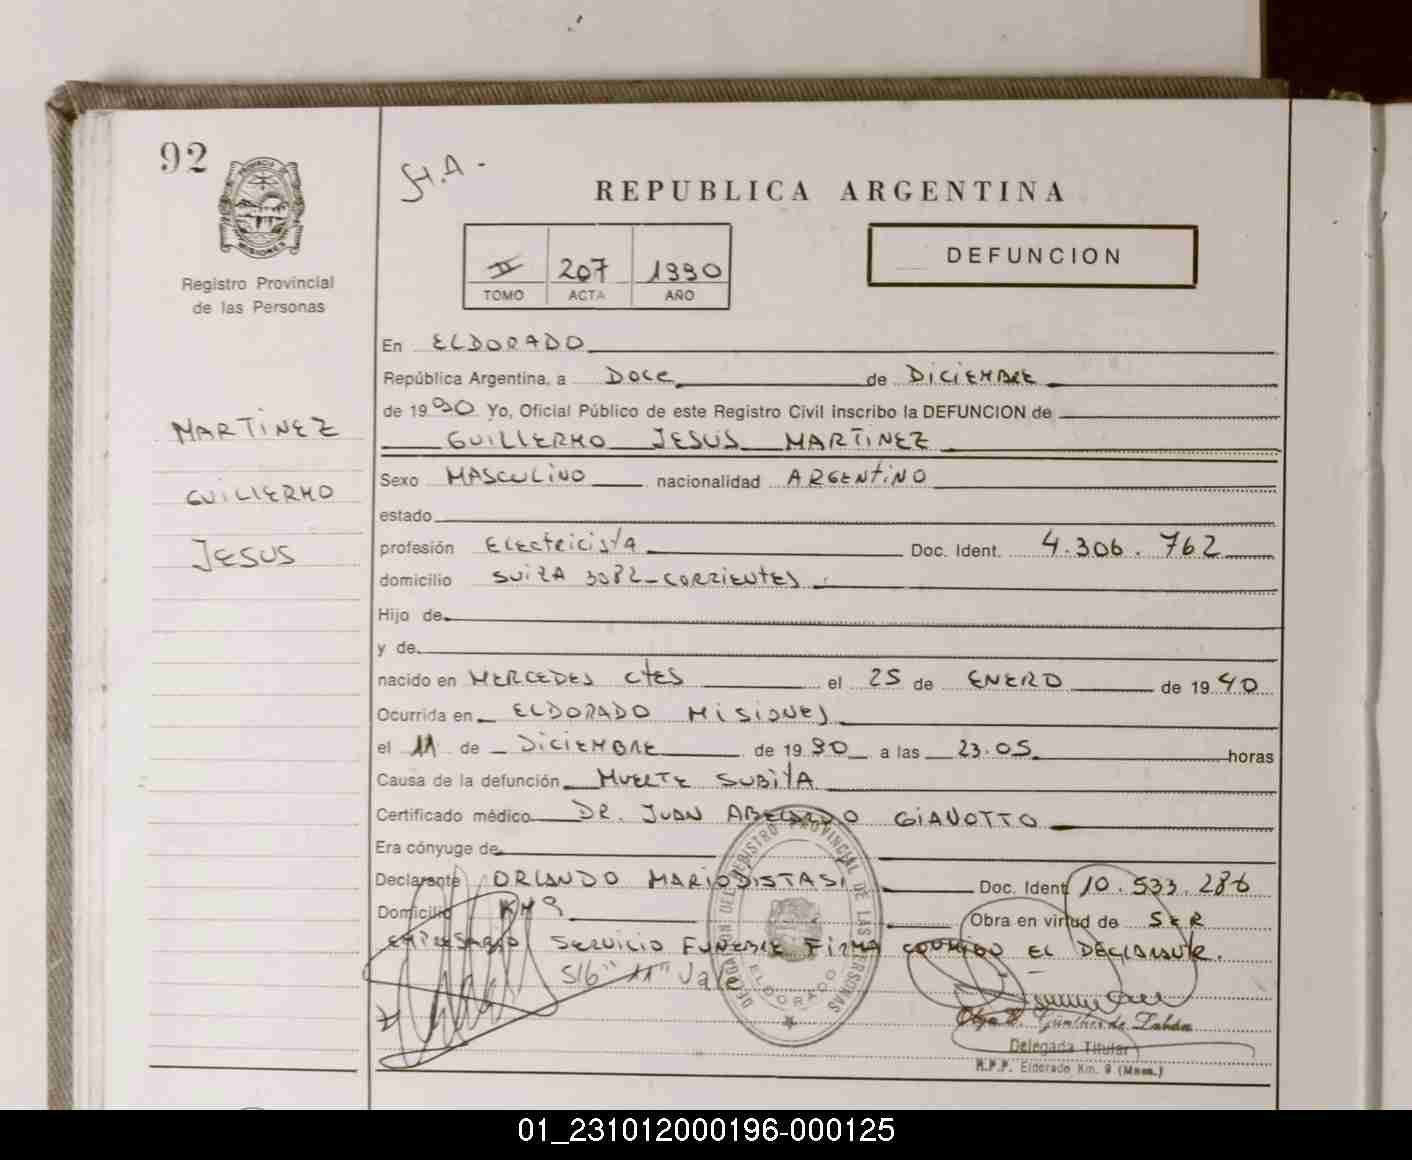 92
Registro Provincial
de las Personas
MARTINEZ
GUILLERMO
JESUS
REPUBLICA ARGENTINA
II 207 1990
TOMO ACTA AÑO
DEFUNCION
En ELDORADO
República Argentina, a DOCE de DICIEMBRE
de 1990 Yo, Oficial Público de este Registro Civil inscribo la DEFUNCION de
GUILLERMO JESUS MARTINEZ
Sexo MASCULINO nacionalidad ARGENTINO
estado
profesión Electricista Doc. Ident. 4.306.762
domicilio SUIZA 3082-CORRIENTES
Hijo de
y de
nacido en MERCEDES CTES el 25 de ENERO de 1940
Ocurrida en ELDORADO MISIONES
el 11 de DICIEMBRE de 1990 a las 23.05 horas
Causa de la defunción MUERTE SUBITA
Certificado médico DR. JUAN ABELARDO GIANOTTO
Era cónyuge de
Declarante ORLANDO MARIO DISTASI Doc. Ident. 10.533.286
Domicilio KM 9 Obra en virtud de SER
EMPRESARIO SERVICIO FUNEBRE FIRMA CONMIGO EL DECLARANTE.
S/b "11" Vale
DELEGACION DEL REGISTRO PROVINCIAL DE LAS PERSONAS
ELDORADO
Delegada Titular
R.P.P. Eldorado Km. 9 (Mnes.)
01_231012000196-000125